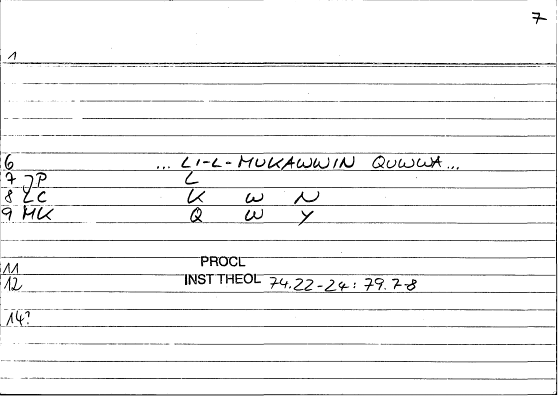 7
1
6 ... LI-L-MUKAWWIN QUWWA...
7 JP L
8 LC K W N
9 MK Q W Y
PROCL
11
INST THEOL 74.22-24: 79.7-8
12
14?